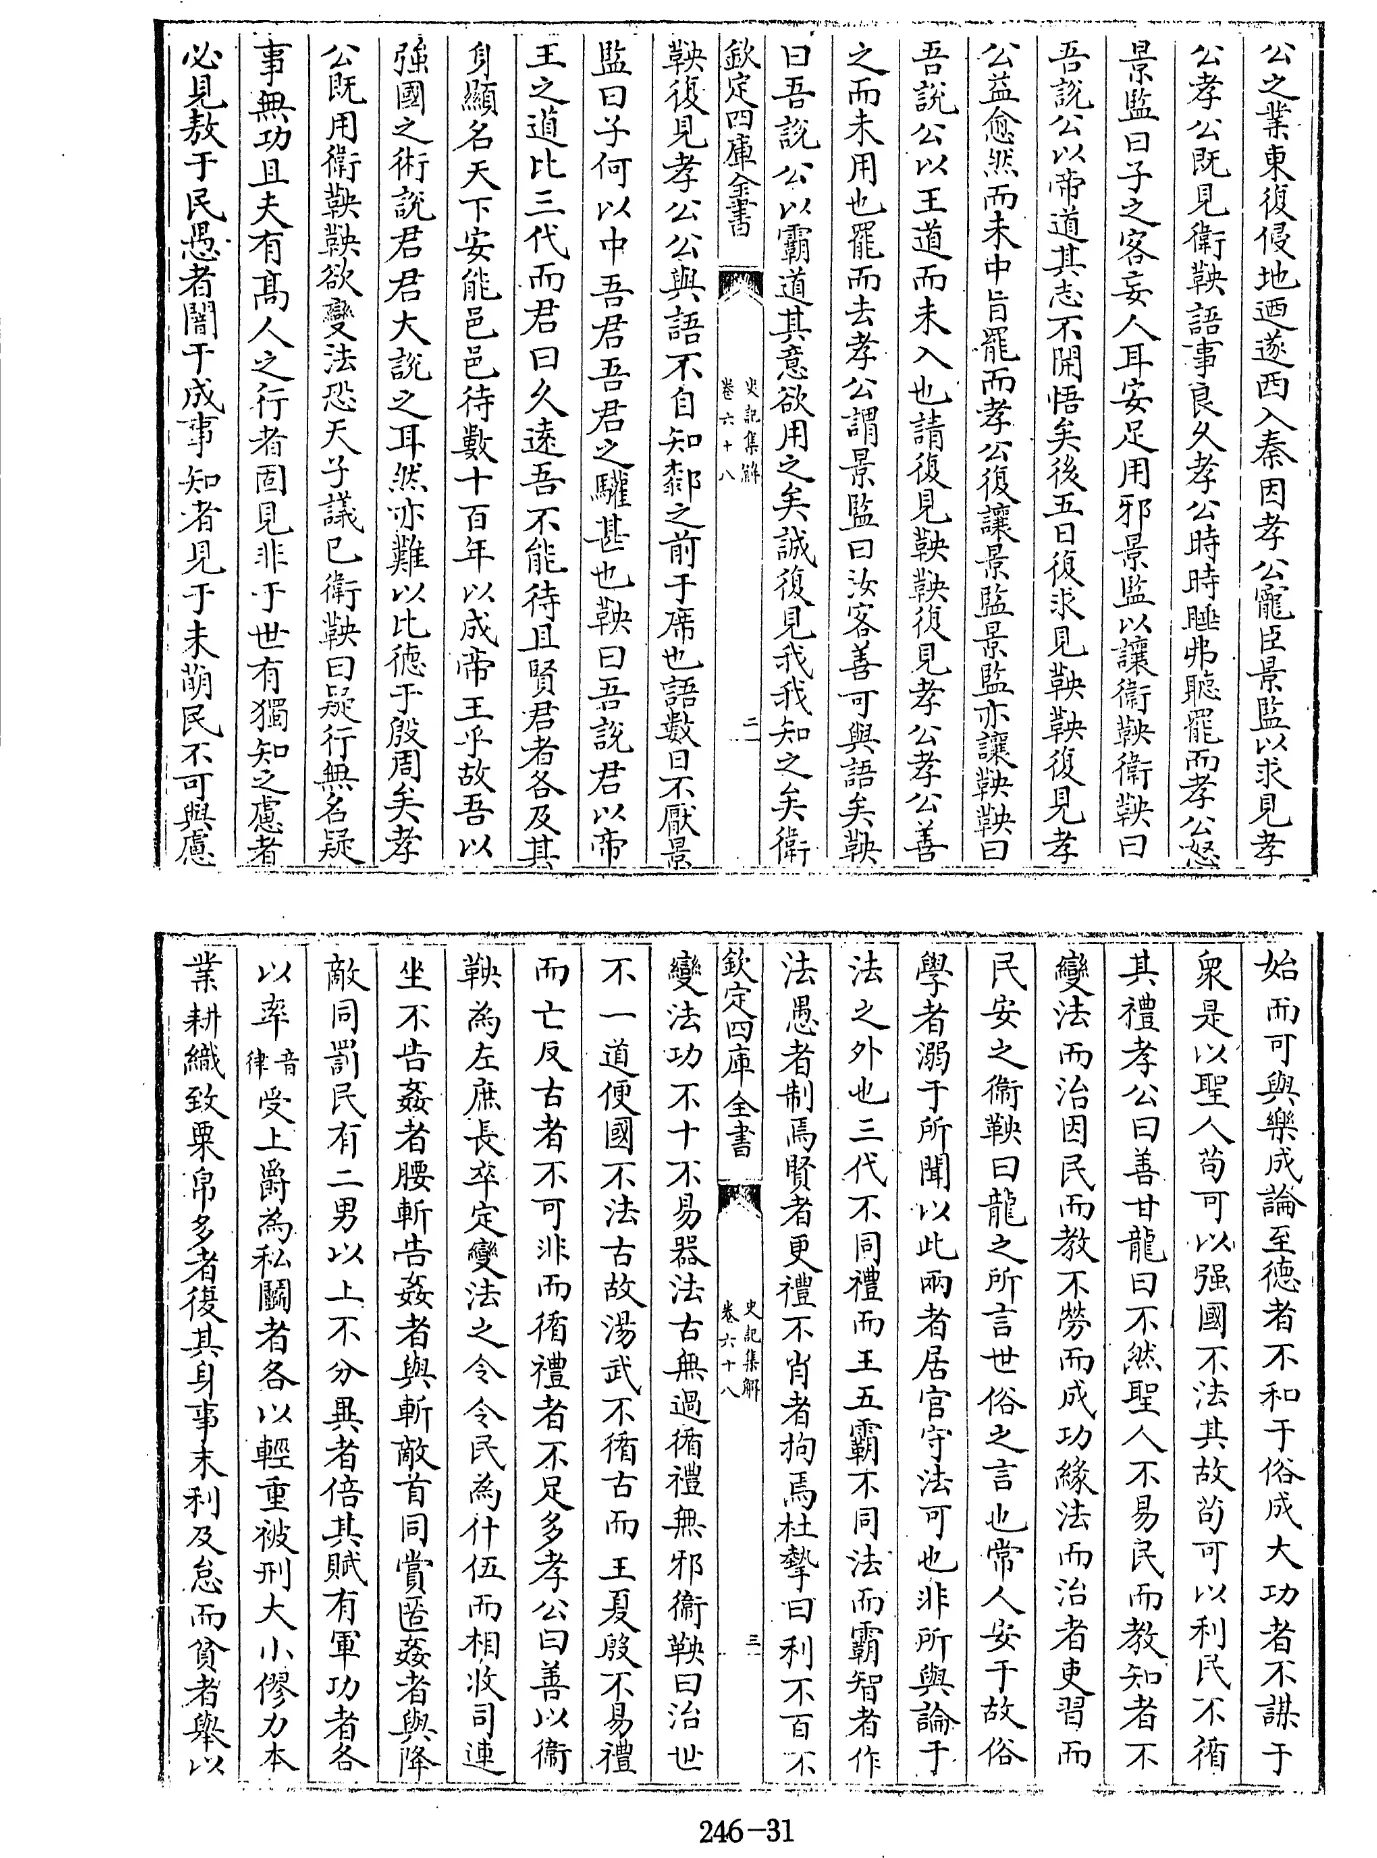 公之業東復侵地迺遂西入秦因孝公寵臣景監以求見孝
公孝公既見衛鞅語事良久孝公時時睡弗聽罷而孝公怒
景監曰子之客妄人耳安足用邪景監以讓衛鞅衛鞅曰
吾說公以帝道其志不開悟矣後五日復求見鞅鞅復見孝
公益愈然而未中旨罷而孝公復讓景監景監亦讓鞅鞅曰
吾說公以王道而未入也請復見鞅鞅復見孝公孝公善
之而未用也罷而去孝公謂景監曰汝客善可與語矣鞅
曰吾說公以霸道其意欲用之矣誠復見我我知之矣衛
欽定四庫全書
史記集解
卷六十八
二
鞅復見孝公公與語不自知厀之前于席也語數日不厭景
監曰子何以中吾君吾君之驩甚也鞅曰吾說君以帝
王之道比三代而君曰久遠吾不能待且賢君者各及其
身顯名天下安能邑邑待數十百年以成帝王乎故吾以
强國之術說君君大說之耳然亦難以比徳于殷周矣孝
公既用衛鞅鞅欲變法恐天子議已衛鞅曰疑行無名疑
事無功且夫有髙人之行者固見非于世有獨知之慮者
必見敖于民愚者闇于成事知者見于未萌民不可與慮
始而可與樂成論至德者不和于俗成大功者不謀于
衆是以聖人苟可以强國不法其故苟可以利民不循
其禮孝公曰善甘龍曰不然聖人不易民而教知者不
變法而治因民而教不勞而成功緣法而治者吏習而
民安之衞鞅曰龍之所言世俗之言也常人安于故俗
學者溺于所聞以此兩者居官守法可也非所與論于
法之外也三代不同禮而王五霸不同法而霸智者作
法愚者制焉賢者更禮不肖者拘焉杜摯曰利不百不
欽定四庫全書
史記集解
卷六十八
三
變法功不十不易器法古無過循禮無邪衞鞅曰治世
不一道便國不法古故湯武不循古而王夏殷不易禮
而亡反古者不可非而循禮者不足多孝公曰善以衞
鞅為左庶長卒定變法之令令民為什伍而相收司連
坐不告姦者腰斬告姦者與斬敵首同賞匿姦者與降
敵同罰民有二男以上不分異者倍其賦有軍功者各
以率音律受上爵為私鬭者各以輕重被刑大小僇力本
業耕織致粟帛多者復其身事末利及怠而貧者舉以
246-31